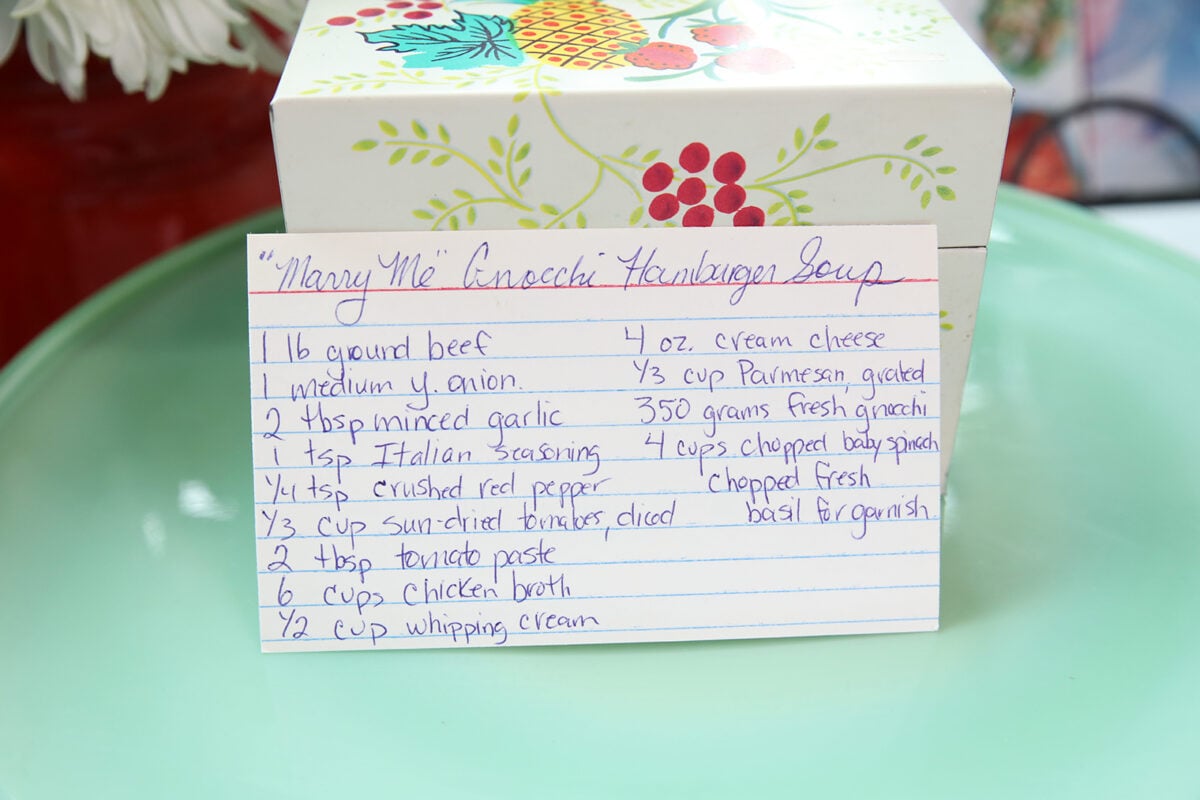 "Marry Me" Gnocchi Hamburger Soup
1 lb ground beef
1 medium y. onion.
2 tbsp minced garlic
1 tsp Italian seasoning
1/4 tsp crushed red pepper
1/3 cup sun-dried tomatoes, diced
2 tbsp tomato paste
6 cups chicken broth
1/2 cup whipping cream
4 oz. cream cheese
1/3 cup Parmesan, grated
350 grams fresh gnocchi
4 cups chopped baby spinach
chopped fresh
basil for garnish